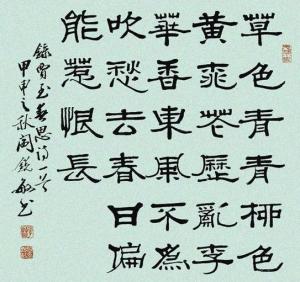 草色青青柳色
黃桃花歷亂李
華香東風不為
吹愁去春日偏
能惹恨長
錄賈至春思詩一首
甲申之秋閩鏡書